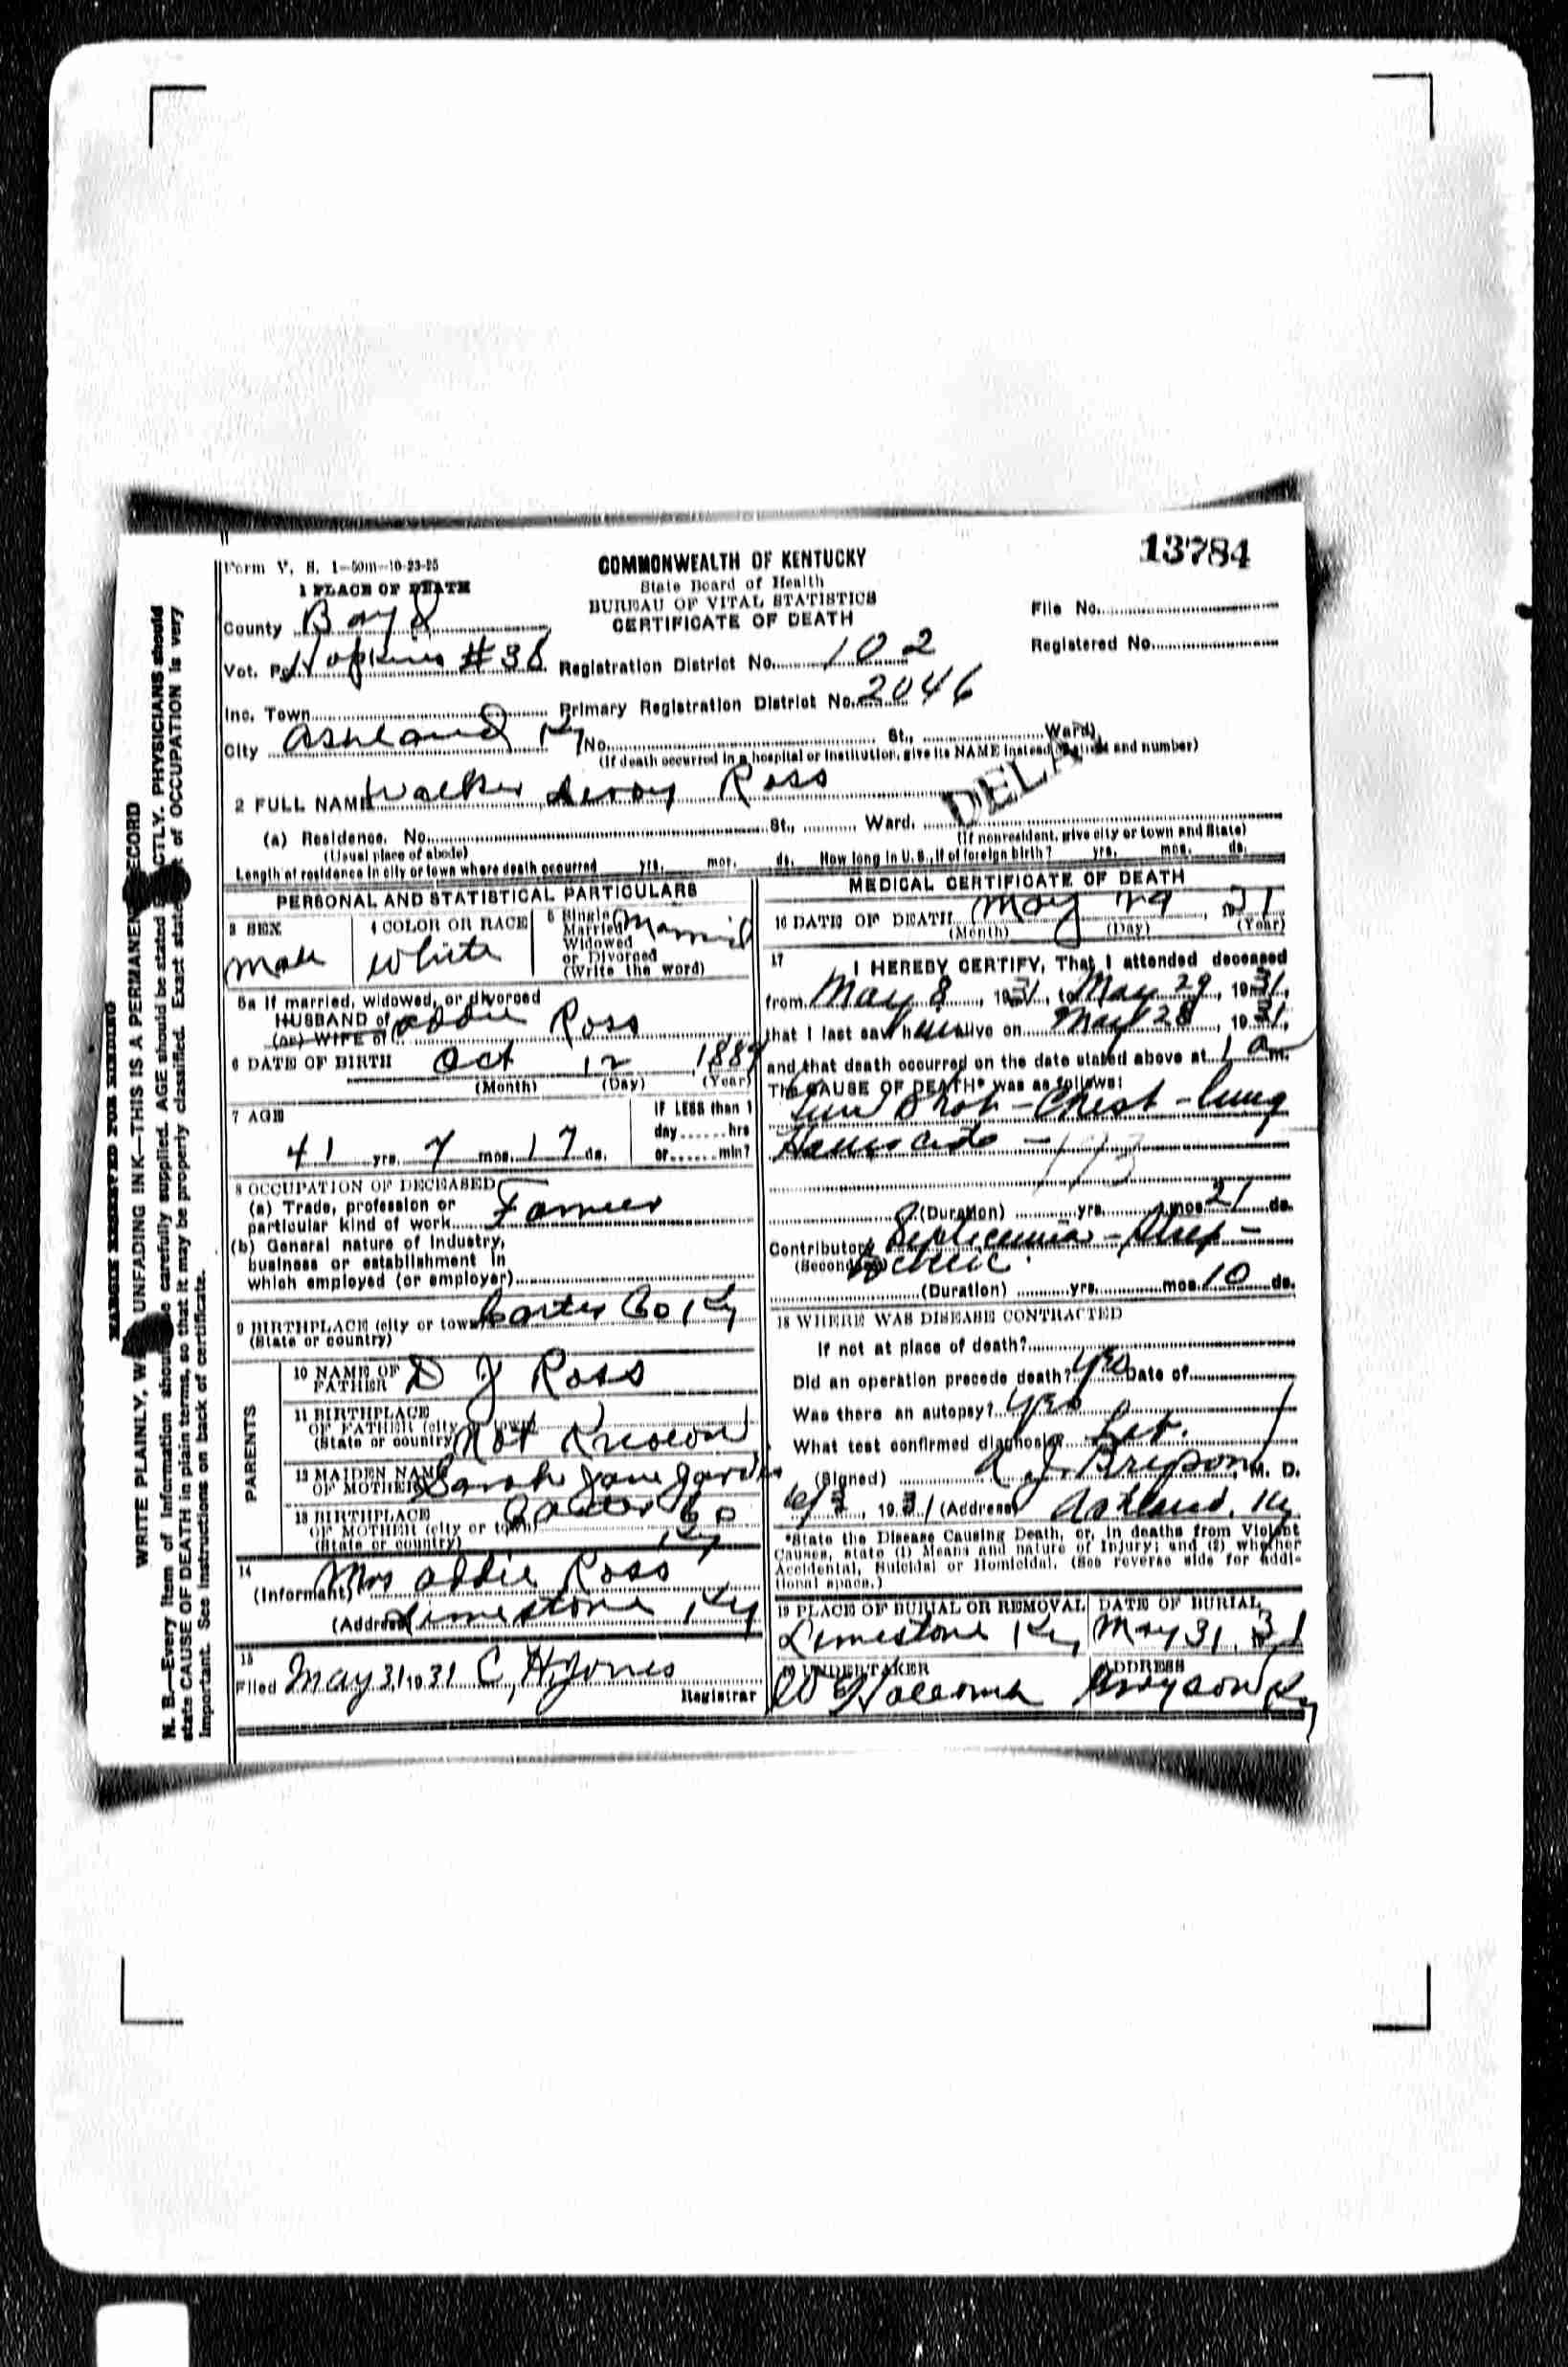 13784
Form V. S. 1-50m-10-23-25
COMMONWEALTH OF KENTUCKY
State Board of Health
BUREAU OF VITAL STATISTICS
CERTIFICATE OF DEATH
File No.
Registered No.
1 PLACE OF DEATH
County Boyd
Vot. Pct. Hopkins #38 Registration District No. 102
Inc. Town Primary Registration District No. 2046
City Ashland Ky No. St., Ward)
(If death occurred in a hospital or institution, give its NAME instead of street and number)
2 FULL NAME Walker Leroy Ross
DELA
(a) Residence. No. St., Ward.
(Usual place of abode) (If nonresident, give city or town and State)
Length of residence in city or town where death occurred yrs. mos. ds. How long in U. S., if of foreign birth? yrs. mos. ds.
PERSONAL AND STATISTICAL PARTICULARS
3 SEX 4 COLOR OR RACE 5 Single Married Widowed or Divorced (Write the word)
Male White Married
5a If married, widowed, or divorced
HUSBAND of Addie Ross
(or) WIFE of
6 DATE OF BIRTH Oct 12 1889
(Month) (Day) (Year)
7 AGE IF LESS than 1
day hrs
41 yrs. 7 mos. 17 ds. or min?
8 OCCUPATION OF DECEASED
(a) Trade, profession or
particular kind of work Farmer
(b) General nature of industry,
business or establishment in
which employed (or employer)
9 BIRTHPLACE (city or town) Carter Co Ky
(State or country)
PARENTS
10 NAME OF FATHER D J Ross
11 BIRTHPLACE OF FATHER (city or town)
(State or country) Not Known
12 MAIDEN NAME OF MOTHER Sarah Jane
13 BIRTHPLACE OF MOTHER (city or town) Carter Co
(State or country) Ky
14
(Informant) Mrs Addie Ross
(Address) Limestone Ky
15
Filed May 31 1931 C, H, Jones
Registrar
MEDICAL CERTIFICATE OF DEATH
16 DATE OF DEATH May 29, 1931
(Month) (Day) (Year)
17 I HEREBY CERTIFY, That I attended deceased
from May 8, 1931, to May 29, 1931,
that I last saw him alive on May 28, 1931,
and that death occurred on the date stated above at 1 a m.
The CAUSE OF DEATH* was as follows:
Gun Shot - Chest - lung
Homicide - 173
(Duration) yrs. mos. 21 ds.
Contributory Septicemia - Strep -
(Secondary)
(Duration) yrs. mos. 10 ds.
18 WHERE WAS DISEASE CONTRACTED
If not at place of death?
Did an operation precede death? yes Date of
Was there an autopsy? yes
What test confirmed diagnosis?
(Signed) M. D.
1931 (Address) Ashland, Ky
*State the Disease Causing Death, or, in deaths from Violent
Causes, state (1) Means and nature of Injury; and (2) whether
Accidental, Suicidal or Homicidal. (See reverse side for addi-
tional space.)
19 PLACE OF BURIAL OR REMOVAL DATE OF BURIAL
Limestone Ky, May 31, 31
20 UNDERTAKER ADDRESS
Grayson Ky
MARGIN RESERVED FOR BINDING
WRITE PLAINLY, W UNFADING INK—THIS IS A PERMANENT RECORD
N. B.—Every item of information should be carefully supplied. AGE should be stated EXACTLY. PHYSICIANS should
state CAUSE OF DEATH in plain terms, so that it may be properly classified. Exact statement of OCCUPATION is very
important. See instructions on back of certificate.